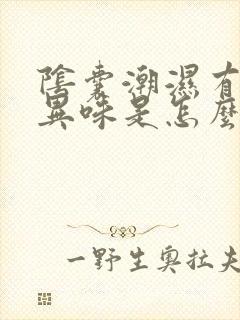 陰囊潮濕有
異味是怎麼
一野生奧拉夫